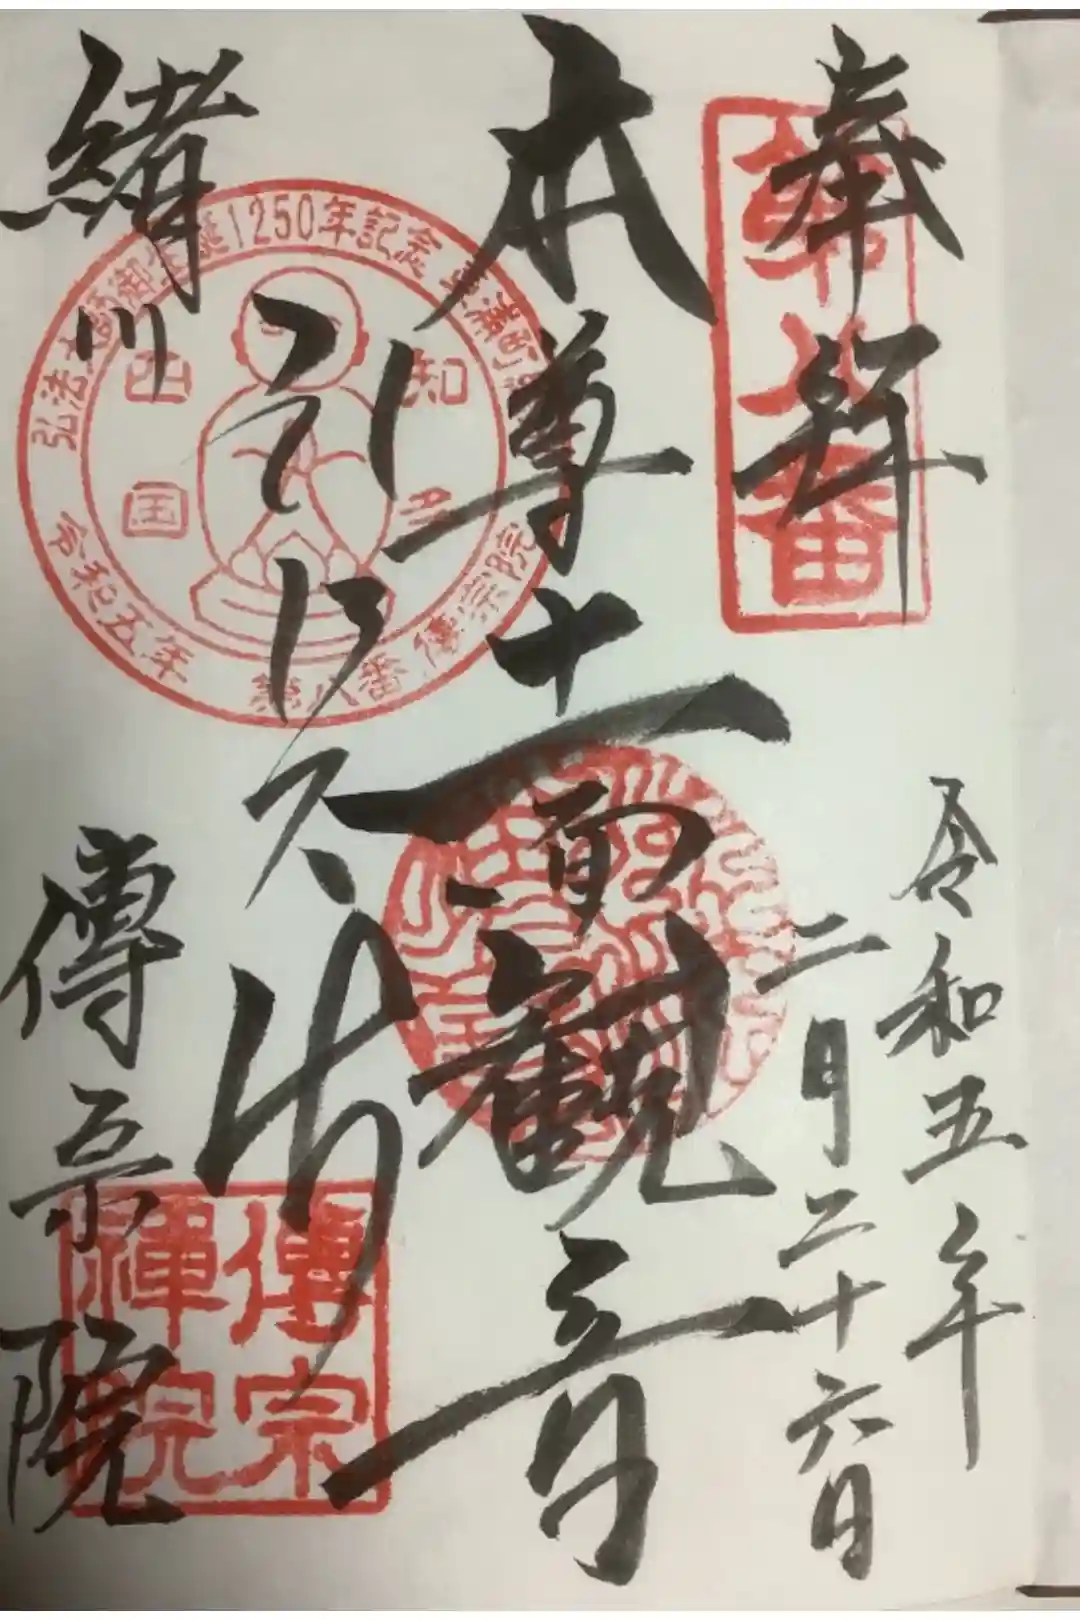 奉拝
第八番
令和五年
二月二十六日
本尊十一面観音
弘法大師
緒川
傳宗院
弘法大師御生誕1250年記念
知多
西国
令和五年
第八番 傳宗院
傳宗
禅院